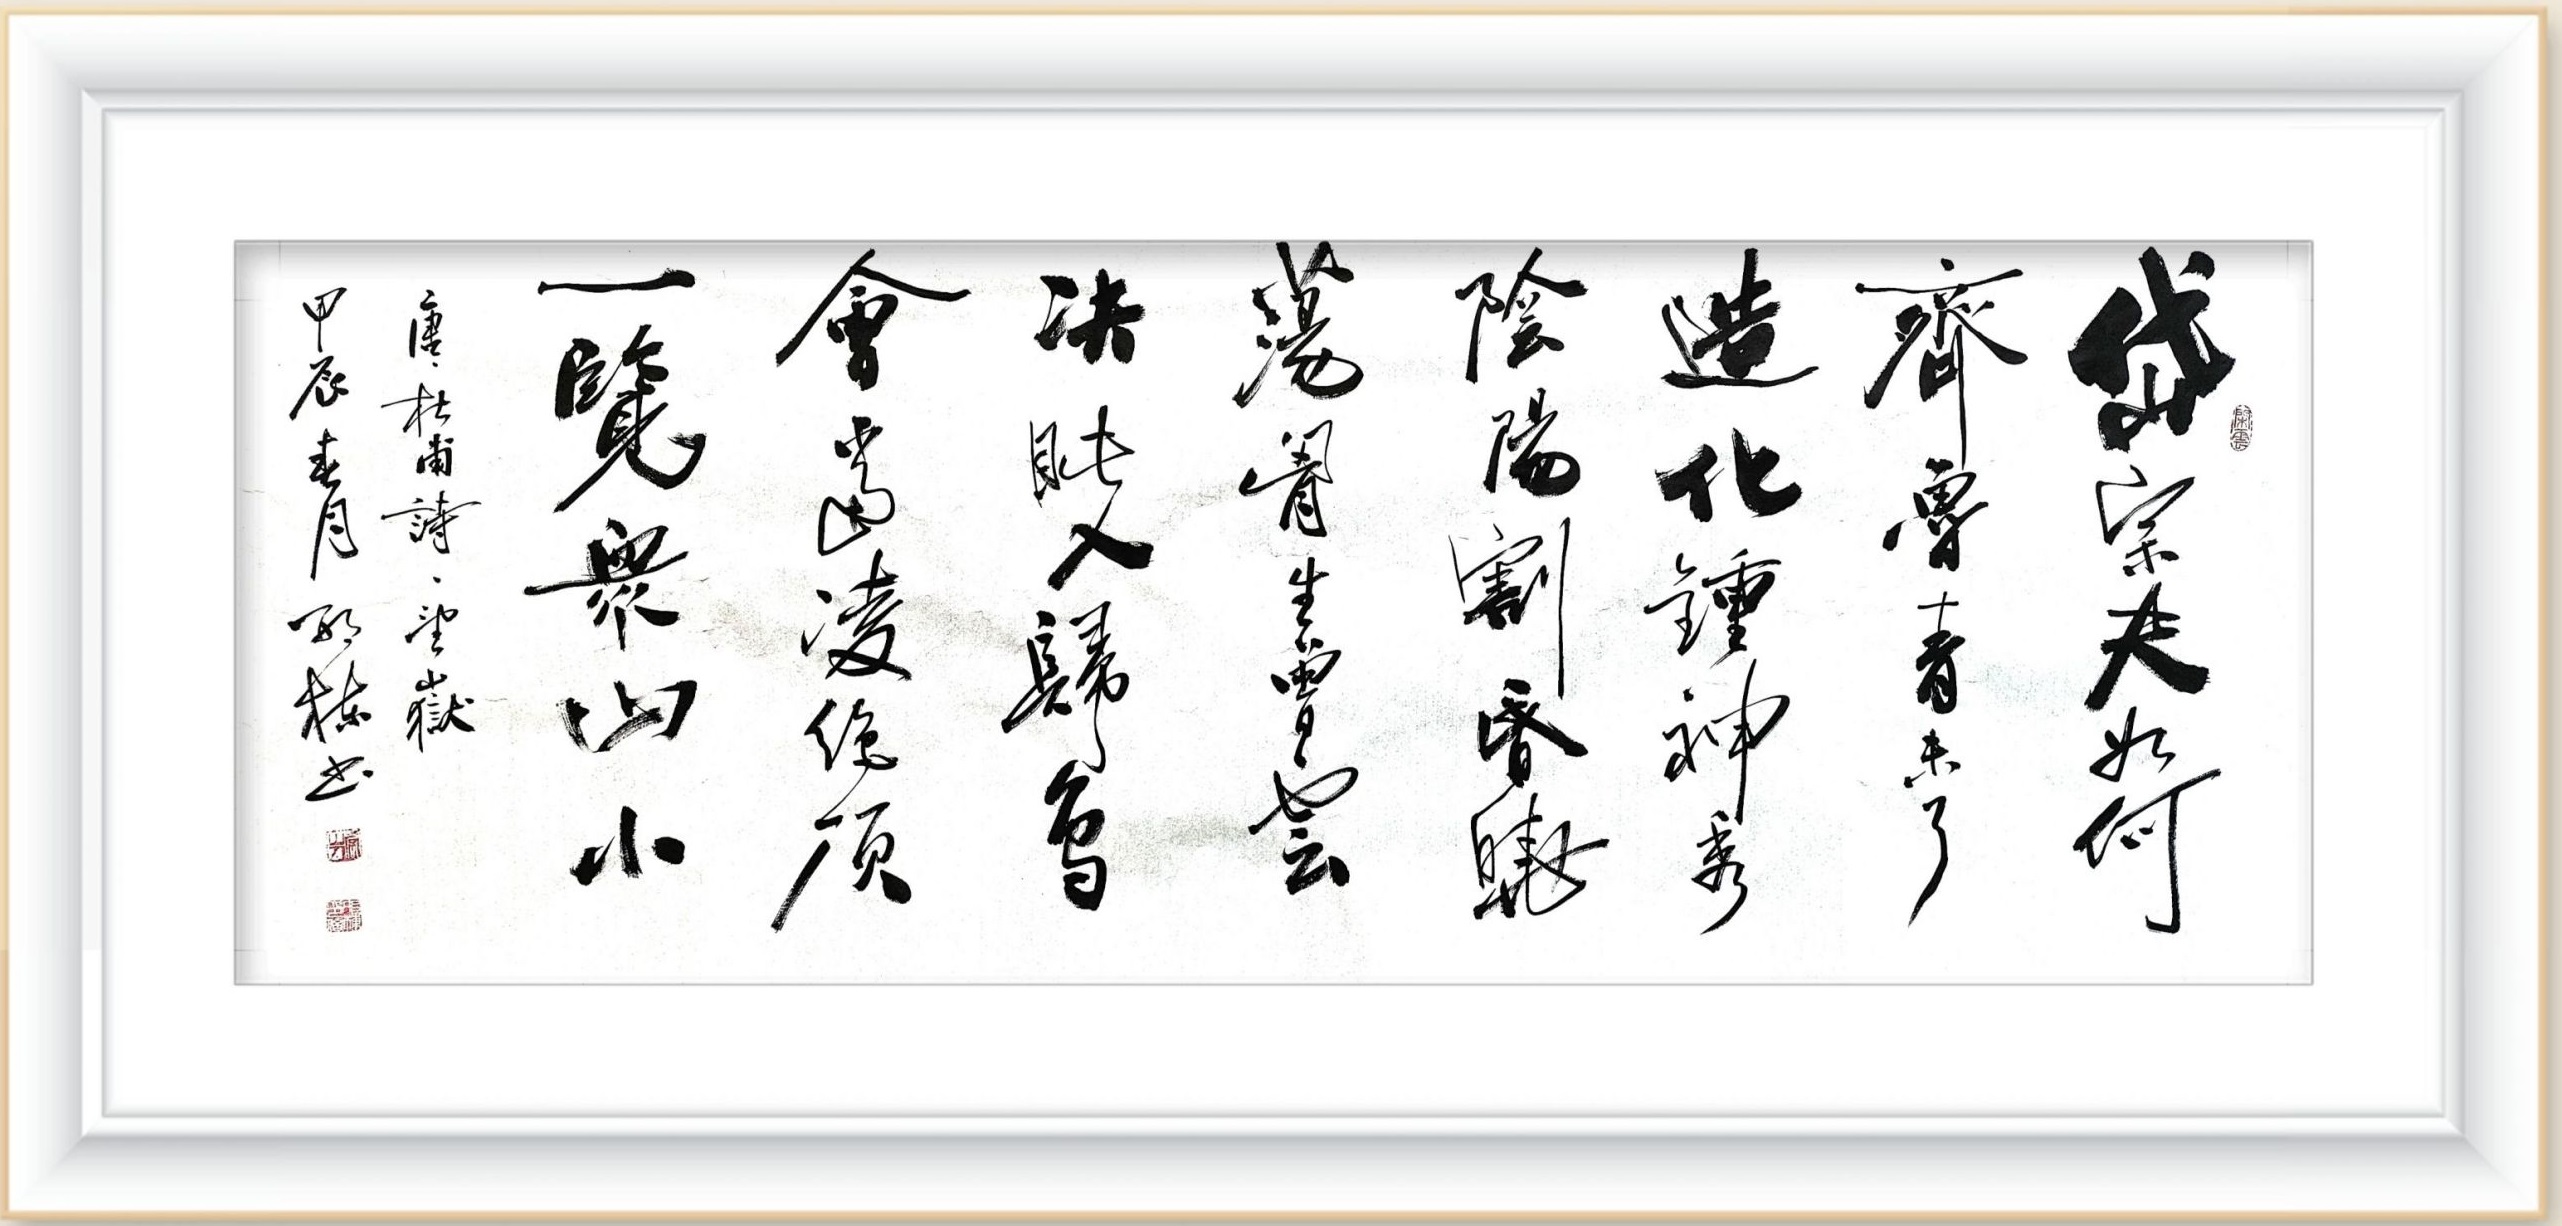 岱宗夫如何
齊魯青未了
造化鍾神秀
陰陽割昏曉
蕩胷生曾雲
決眦入歸鳥
會當凌絕頂
一覽眾山小
唐、杜甫詩、望嶽
甲辰春月 棟书